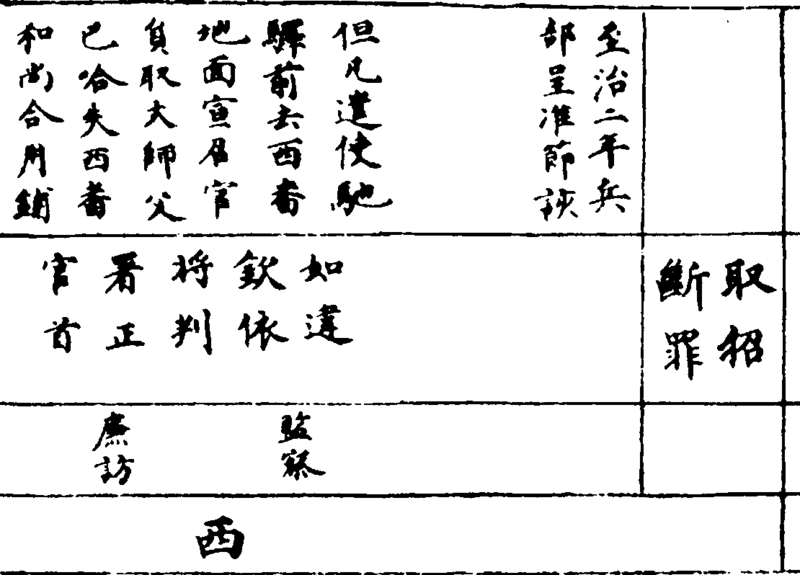 至治二年兵
部呈准節該
但凡遣使馳
驛前去西番
地面宣召官
員取大師父
巴哈失西番
和尚合用鋪
取招
斷罪
如違
欽依
将判
署正
官首
監察
廉訪
西